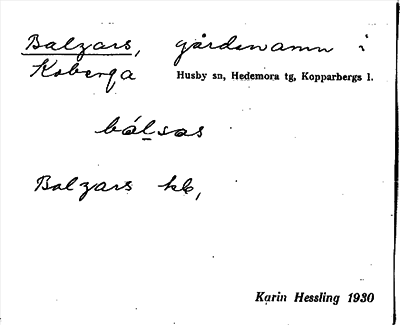 Balzars, gårdsnamn i
Koberga Husby sn, Hedemora tg, Kopparbergs l.
bálsas
Balzars hb,
Karin Hessling 1930